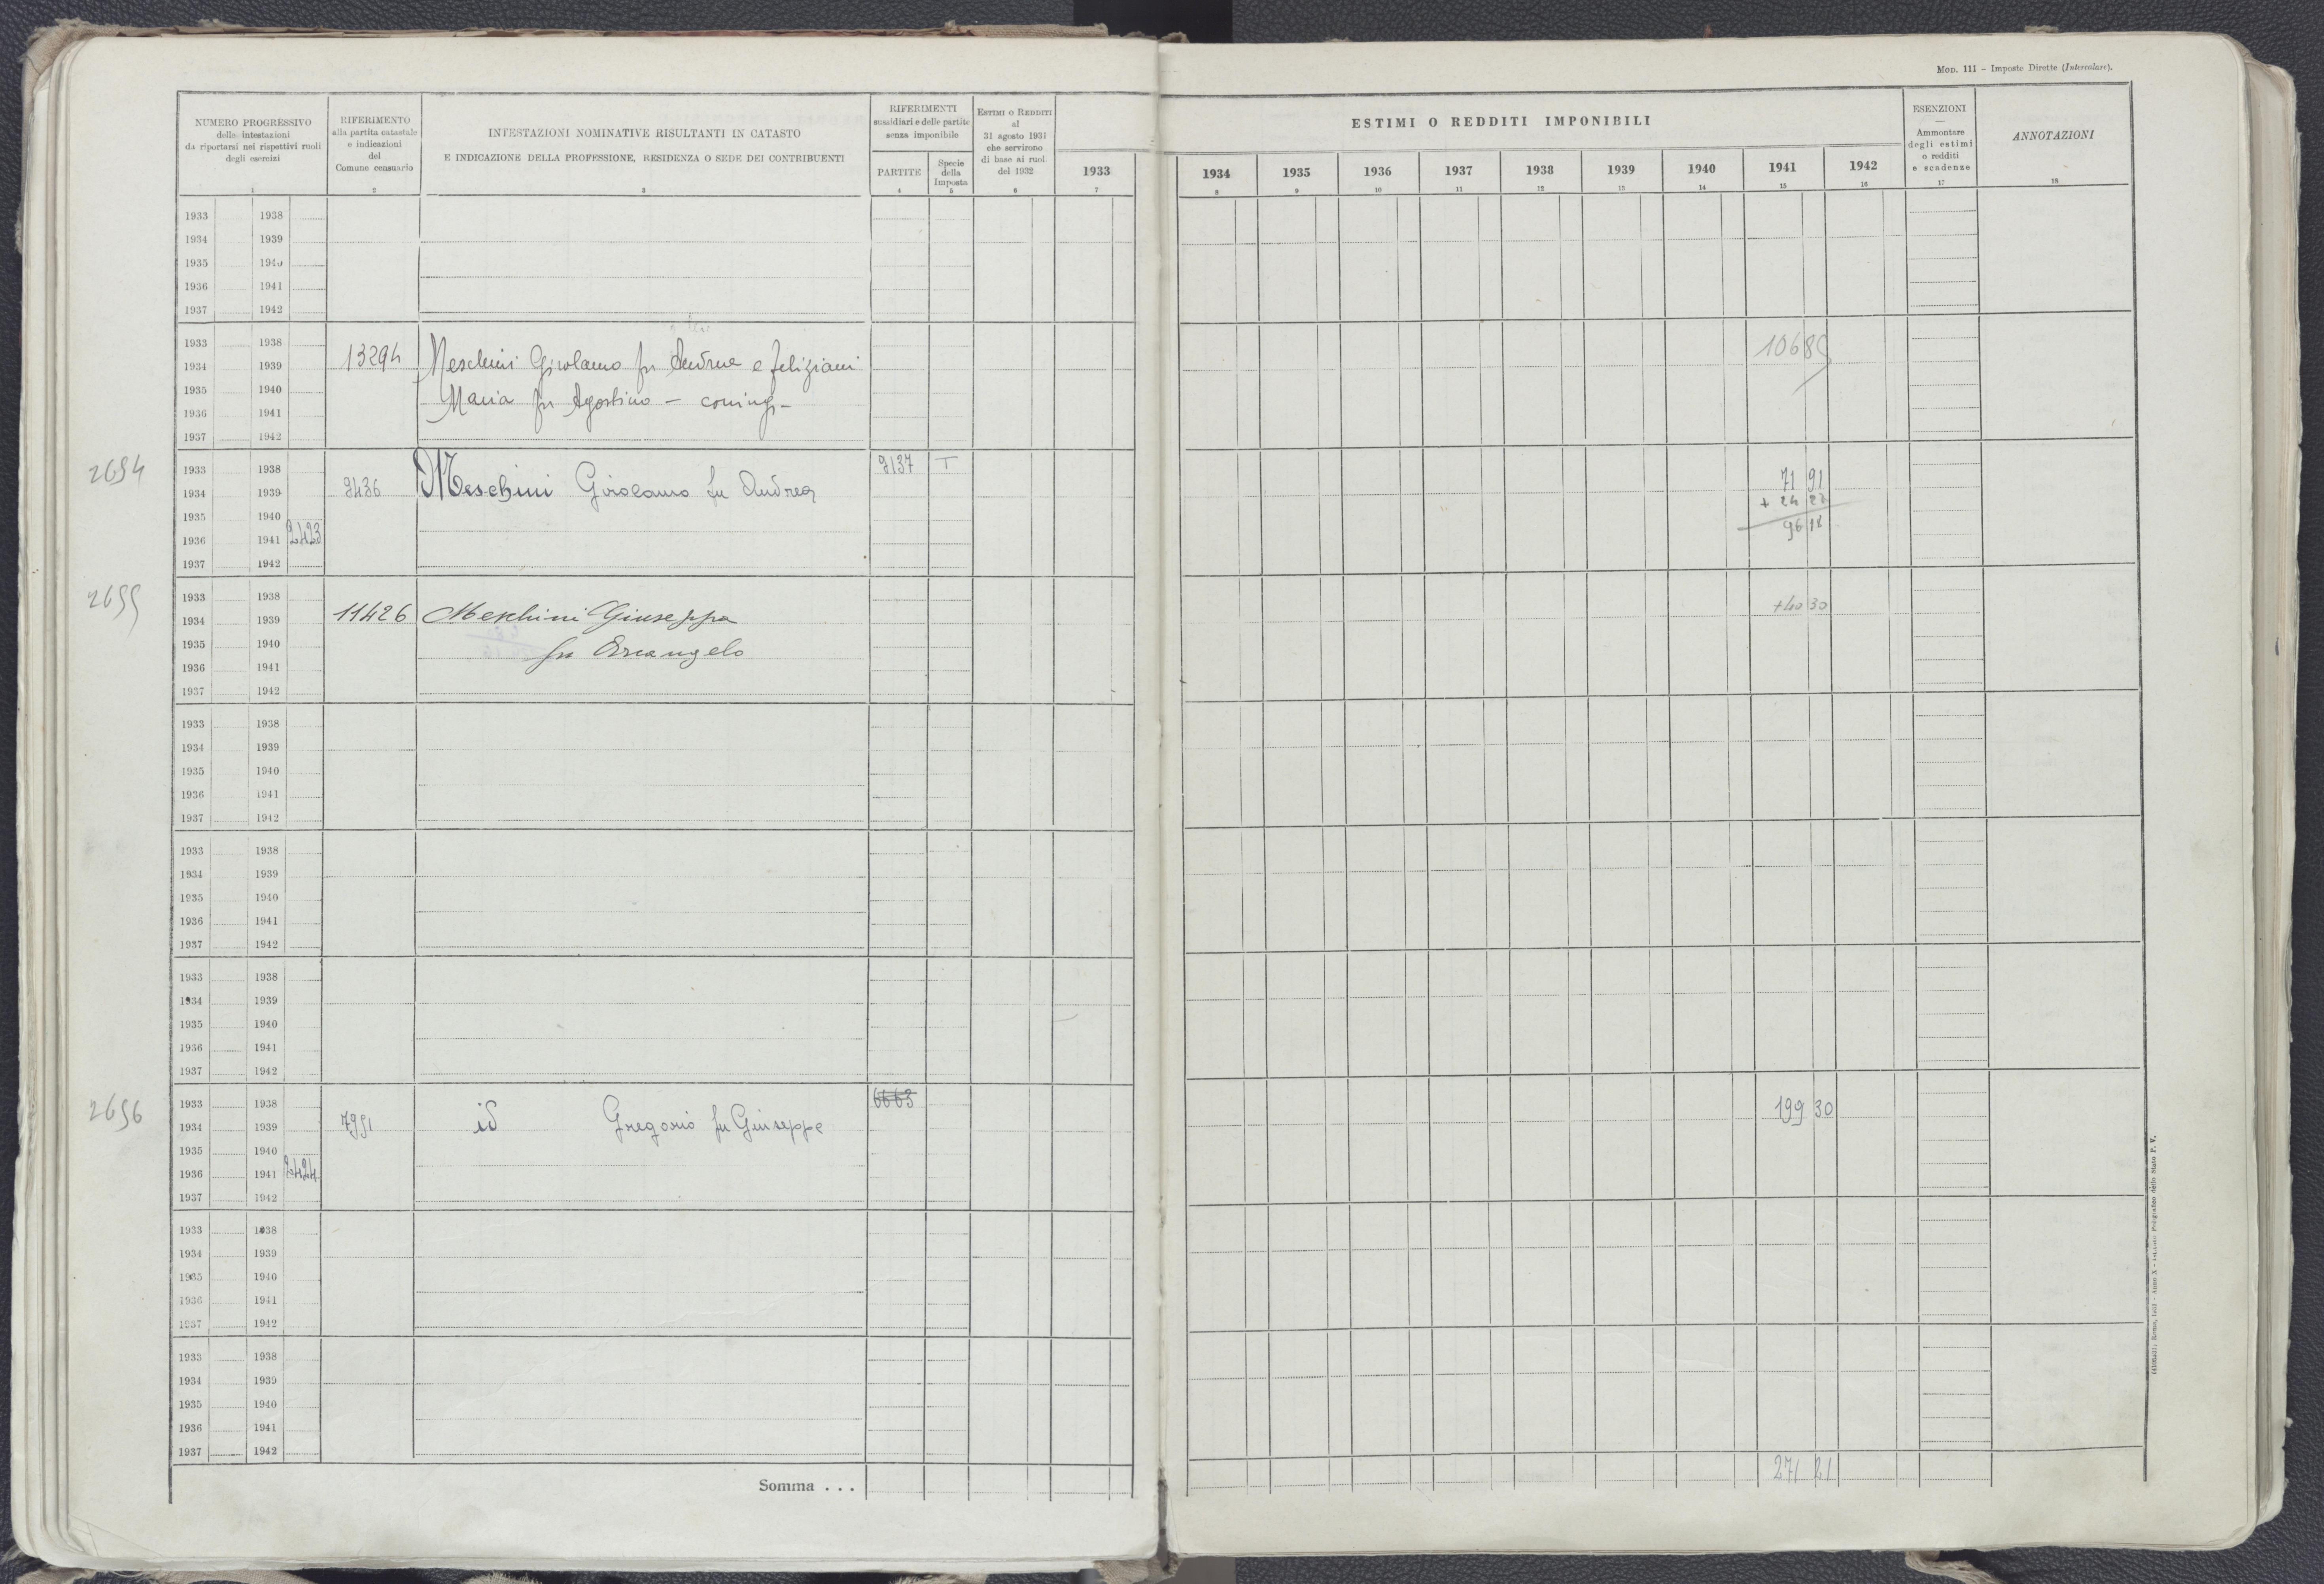 MOD. 111 – Imposte Dirette (Intercalare).
NUMERO PROGRESSIVO
delle intestazioni
da riportarsi nei rispettivi ruoli
degli esercizi
1
RIFERIMENTO
alla partita catastale
e indicazioni
del
Comune censuario
2
INTESTAZIONI NOMINATIVE RISULTANTI IN CATASTO
E INDICAZIONE DELLA PROFESSIONE, RESIDENZA O SEDE DEI CONTRIBUENTI
3
RIFERIMENTI
sussidiari e delle partite
senza imponibile
PARTITE
4
Specie
della
Imposta
5
ESTIMI O REDDITI
al
31 agosto 1931
che servirono
di base ai ruoli
del 1932
6
1933
7
ESTIMI O REDDITI IMPONIBILI
1934 1935 1936 1937 1938 1939 1940 1941 1942
8 9 10 11 12 13 14 15 16
ESENZIONI
—
Ammontare
degli estimi
o redditi
e scadenze
17
ANNOTAZIONI
18
1933 1938
1934 1939
1935 1940
1936 1941
1937 1942
1933 1938
1934 1939 13294 Meschini Girolamo fu Andrea e Feliziani 10685
1935 1940 Maria fu Agostino – coniugi –
1936 1941
1937 1942
2694 1933 1938 9137 T 71 91
1934 1939 9436 Meschini Girolamo fu Andrea + 24 27
1935 1940 96 18
1936 1941 2423
1937 1942
2695 1933 1938 +40 30
1934 1939 11426 Meschini Giuseppa
1935 1940 fu Arcangelo
1936 1941
1937 1942
1933 1938
1934 1939
1935 1940
1936 1941
1937 1942
1933 1938
1934 1939
1935 1940
1936 1941
1937 1942
1933 1938
1934 1939
1935 1940
1936 1941
1937 1942
2696 1933 1938 6663 199 30
1934 1939 7991 id Gregorio fu Giuseppe
1935 1940
1936 1941 2424
1937 1942
1933 1938
1934 1939
1935 1940
1936 1941
1937 1942
1933 1938
1934 1939
1935 1940
1936 1941
1937 1942
Somma . . . 271 21